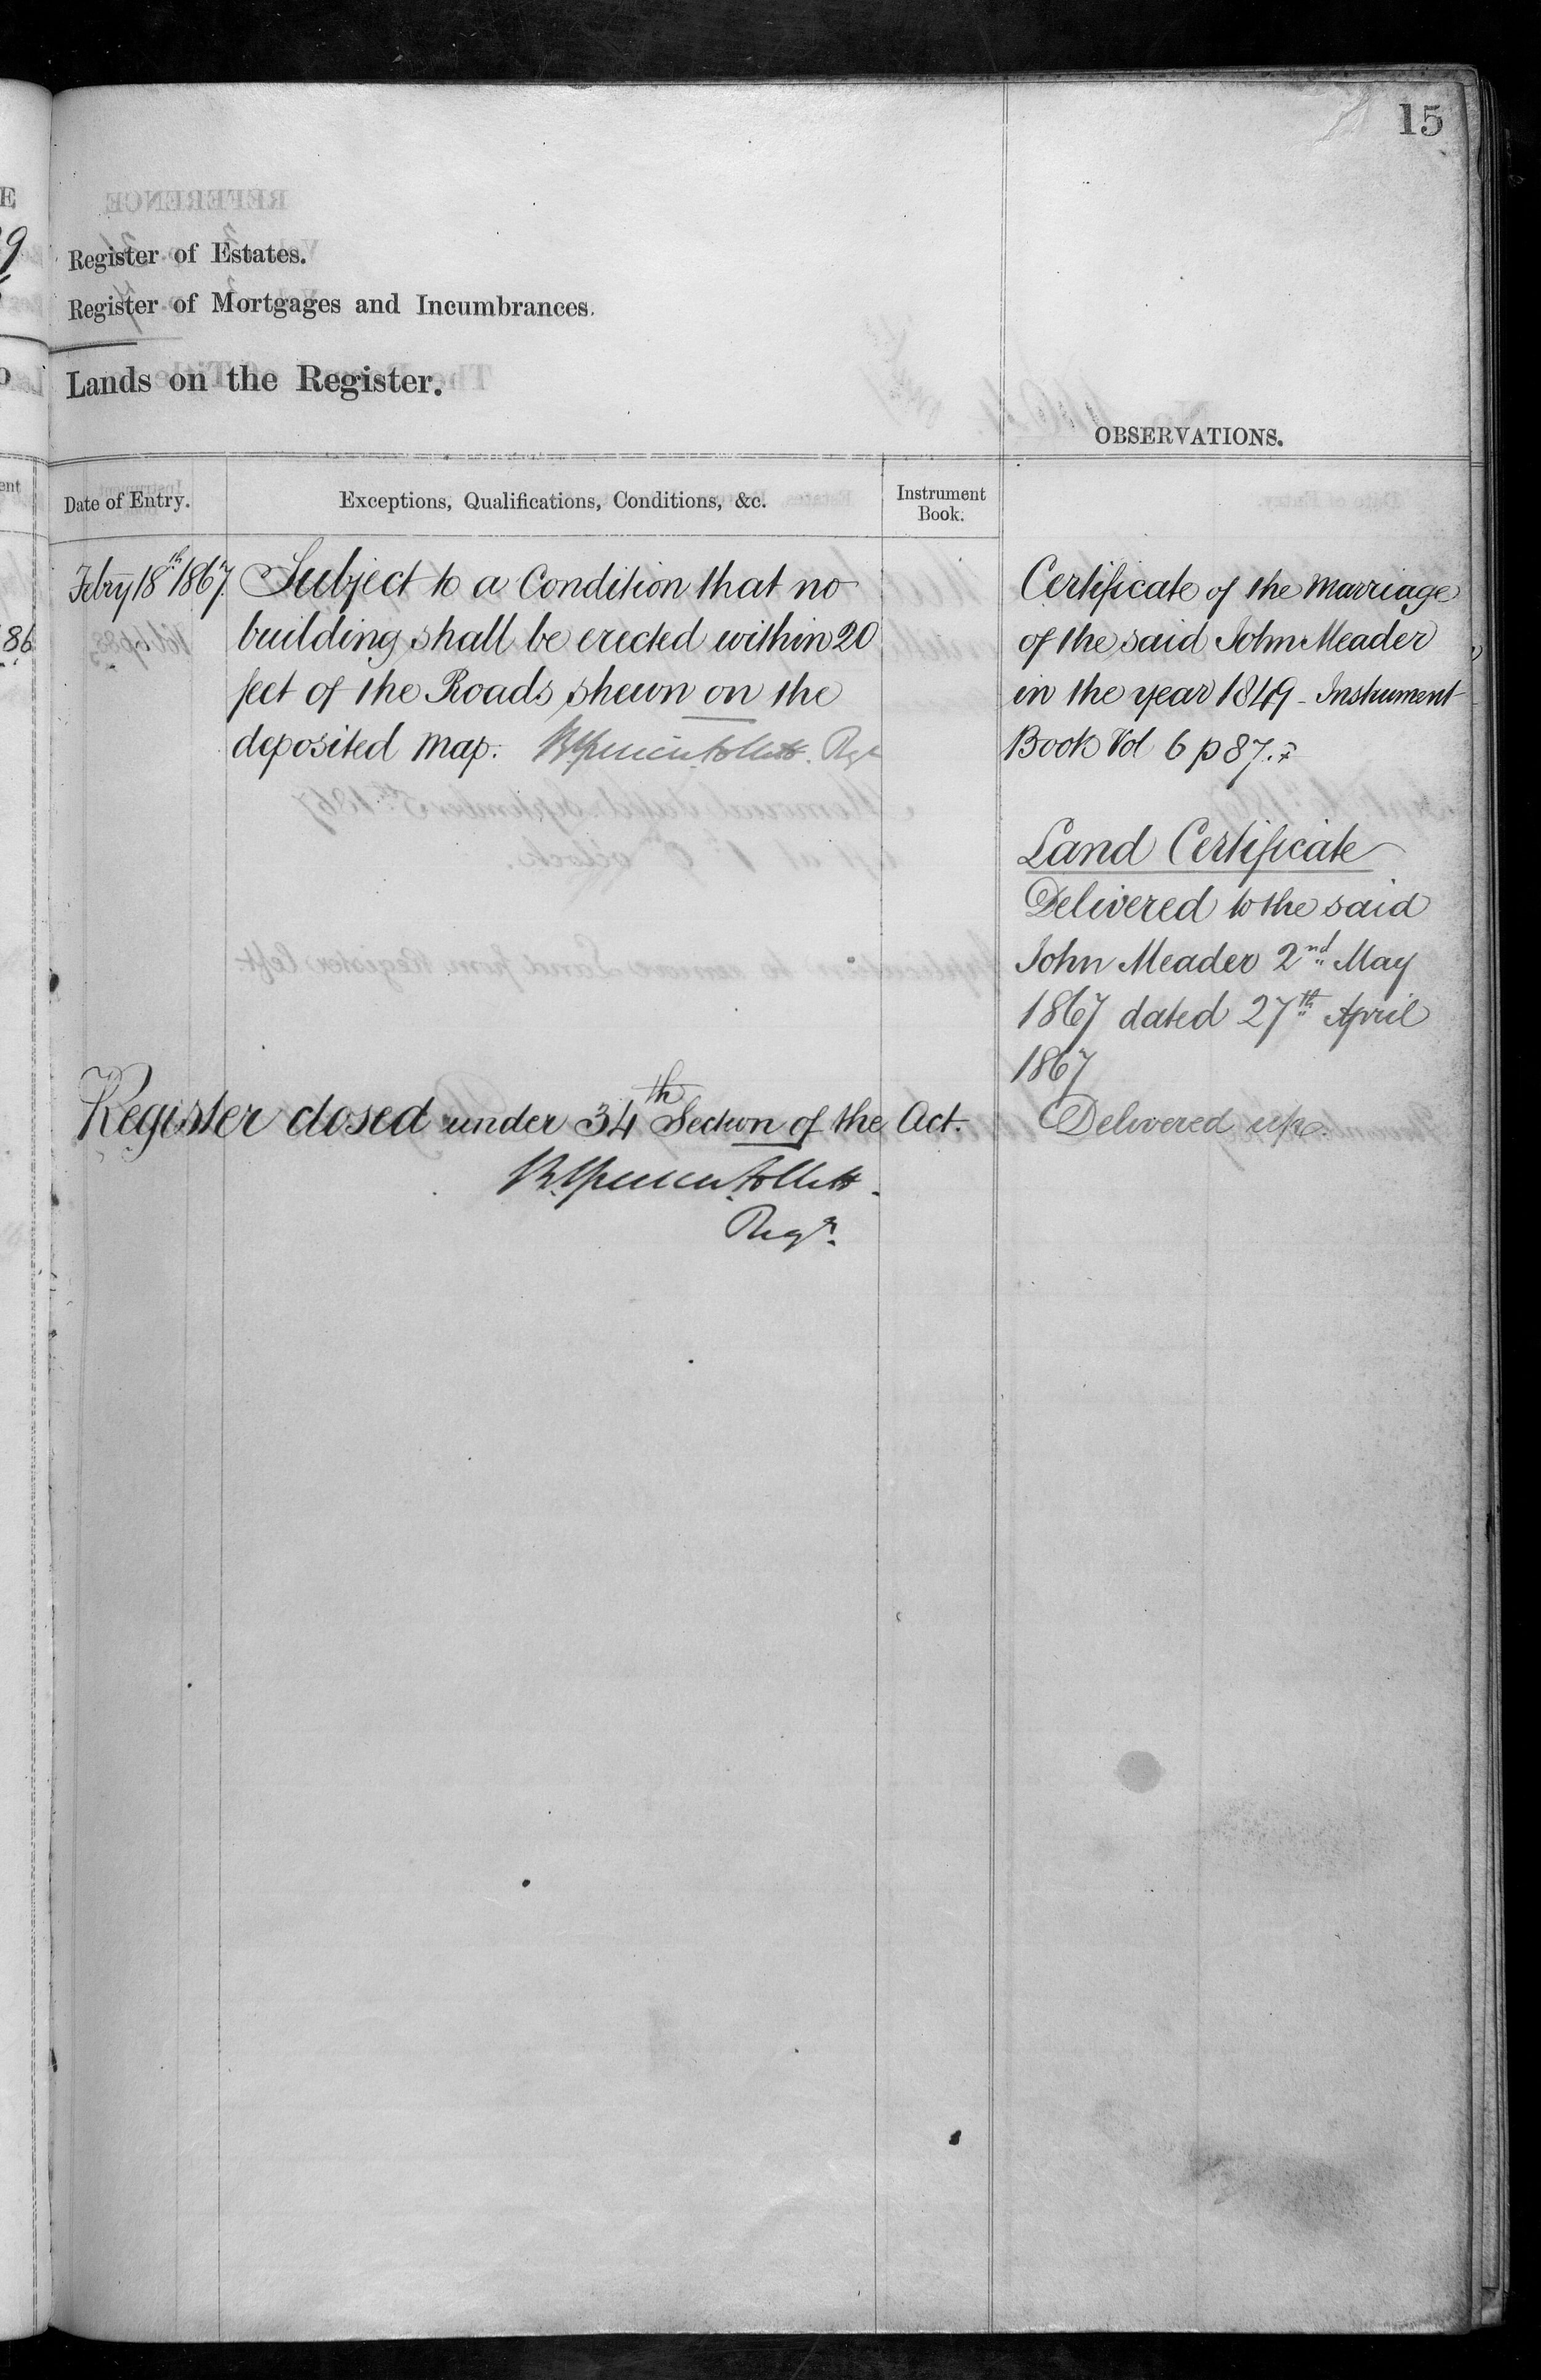 15
Register of Estates.
Register of Mortgages and Incumbrances.
Lands on the Register.
OBSERVATIONS.
Date of Entry.
Exceptions, Qualifications, Conditions, &c.
Instrument
Book.
Febry 18th 1867.
Subject to a Condition that no
building shall be erected within 20
feet of the Roads shewn on the
deposited Map. Regr
Certificate of the Marriage
of the said John Meader
in the year 1849 - Instrument
Book Vol 6 p 87.
Land Certificate
Delivered to the said
John Meader 2nd May
1867 dated 27th April
1867
Delivered up.
Register closed under 34th Section of the Act.
Regr.
86